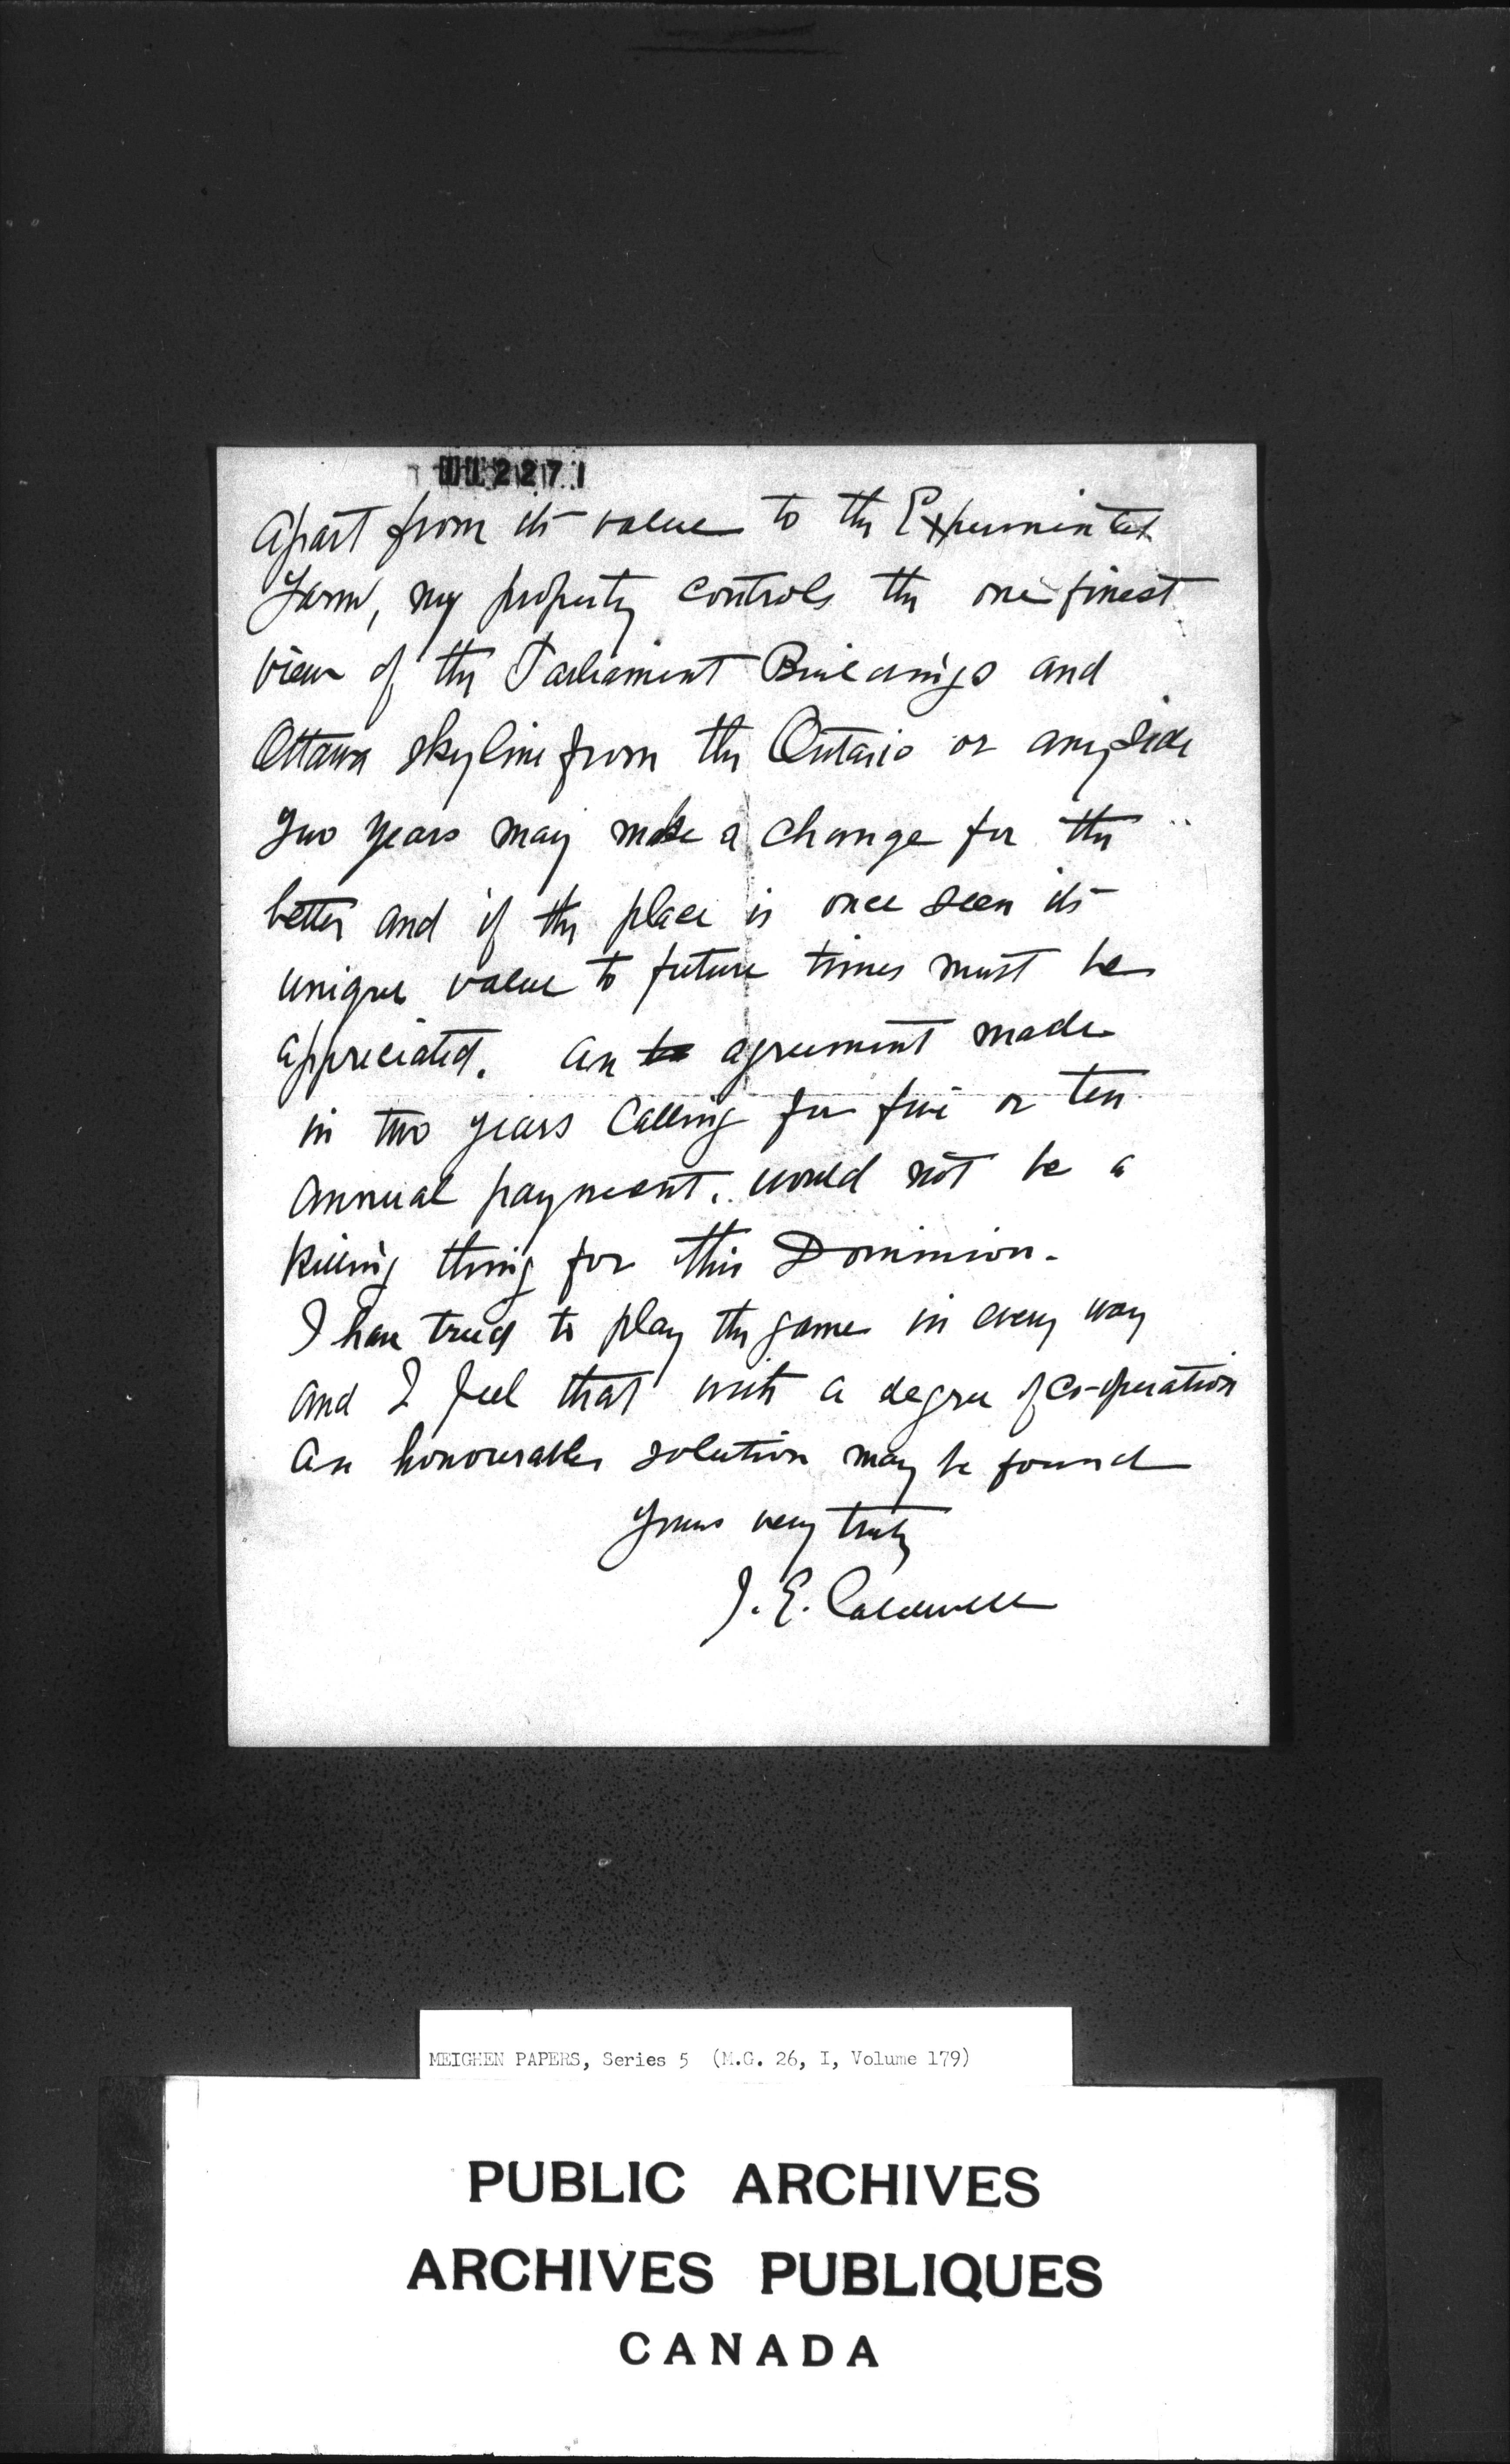 112271
Apart from its value to the Experimental
Farm, my property controls the one finest
view of the Parliament Buildings and
Ottawa skyline from the Ontario or any side
Two years may make a change for the
better and if the place is once seen its
unique value to future times must be
appreciated. An agreement made
in two years calling for five or ten
annual payment. would not be a
killing thing for this Dominion.
I have tried to play the game in every way
and I feel that with a degree of co-operation
an honourable solution may be found
Yours very truly
J. E. Caldwell
MEIGHEN PAPERS, Series 5 (M.G. 26, I, Volume 179)
PUBLIC ARCHIVES
ARCHIVES PUBLIQUES
CANADA